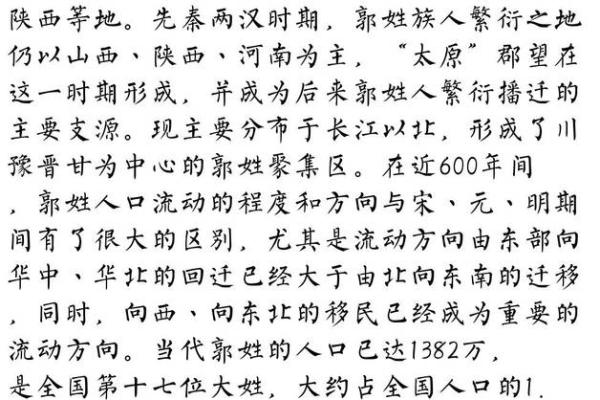 陕西等地。先秦两汉时期，郭姓族人繁衍之地
仍以山西、陕西、河南为主，“太原”郡望在
这一时期形成，并成为后来郭姓人繁衍播迁的
主要支源。现主要分布于长江以北，形成了川
豫晋甘为中心的郭姓聚集区。在近600年间
，郭姓人口流动的程度和方向与宋、元、明期
间有了很大的区别，尤其是流动方向由东部向
华中、华北的回迁已经大于由北向东南的迁移
，同时，向西、向东北的移民已经成为重要的
流动方向。当代郭姓的人口已达1382万，
是全国第十七位大姓，大约占全国人口的1.